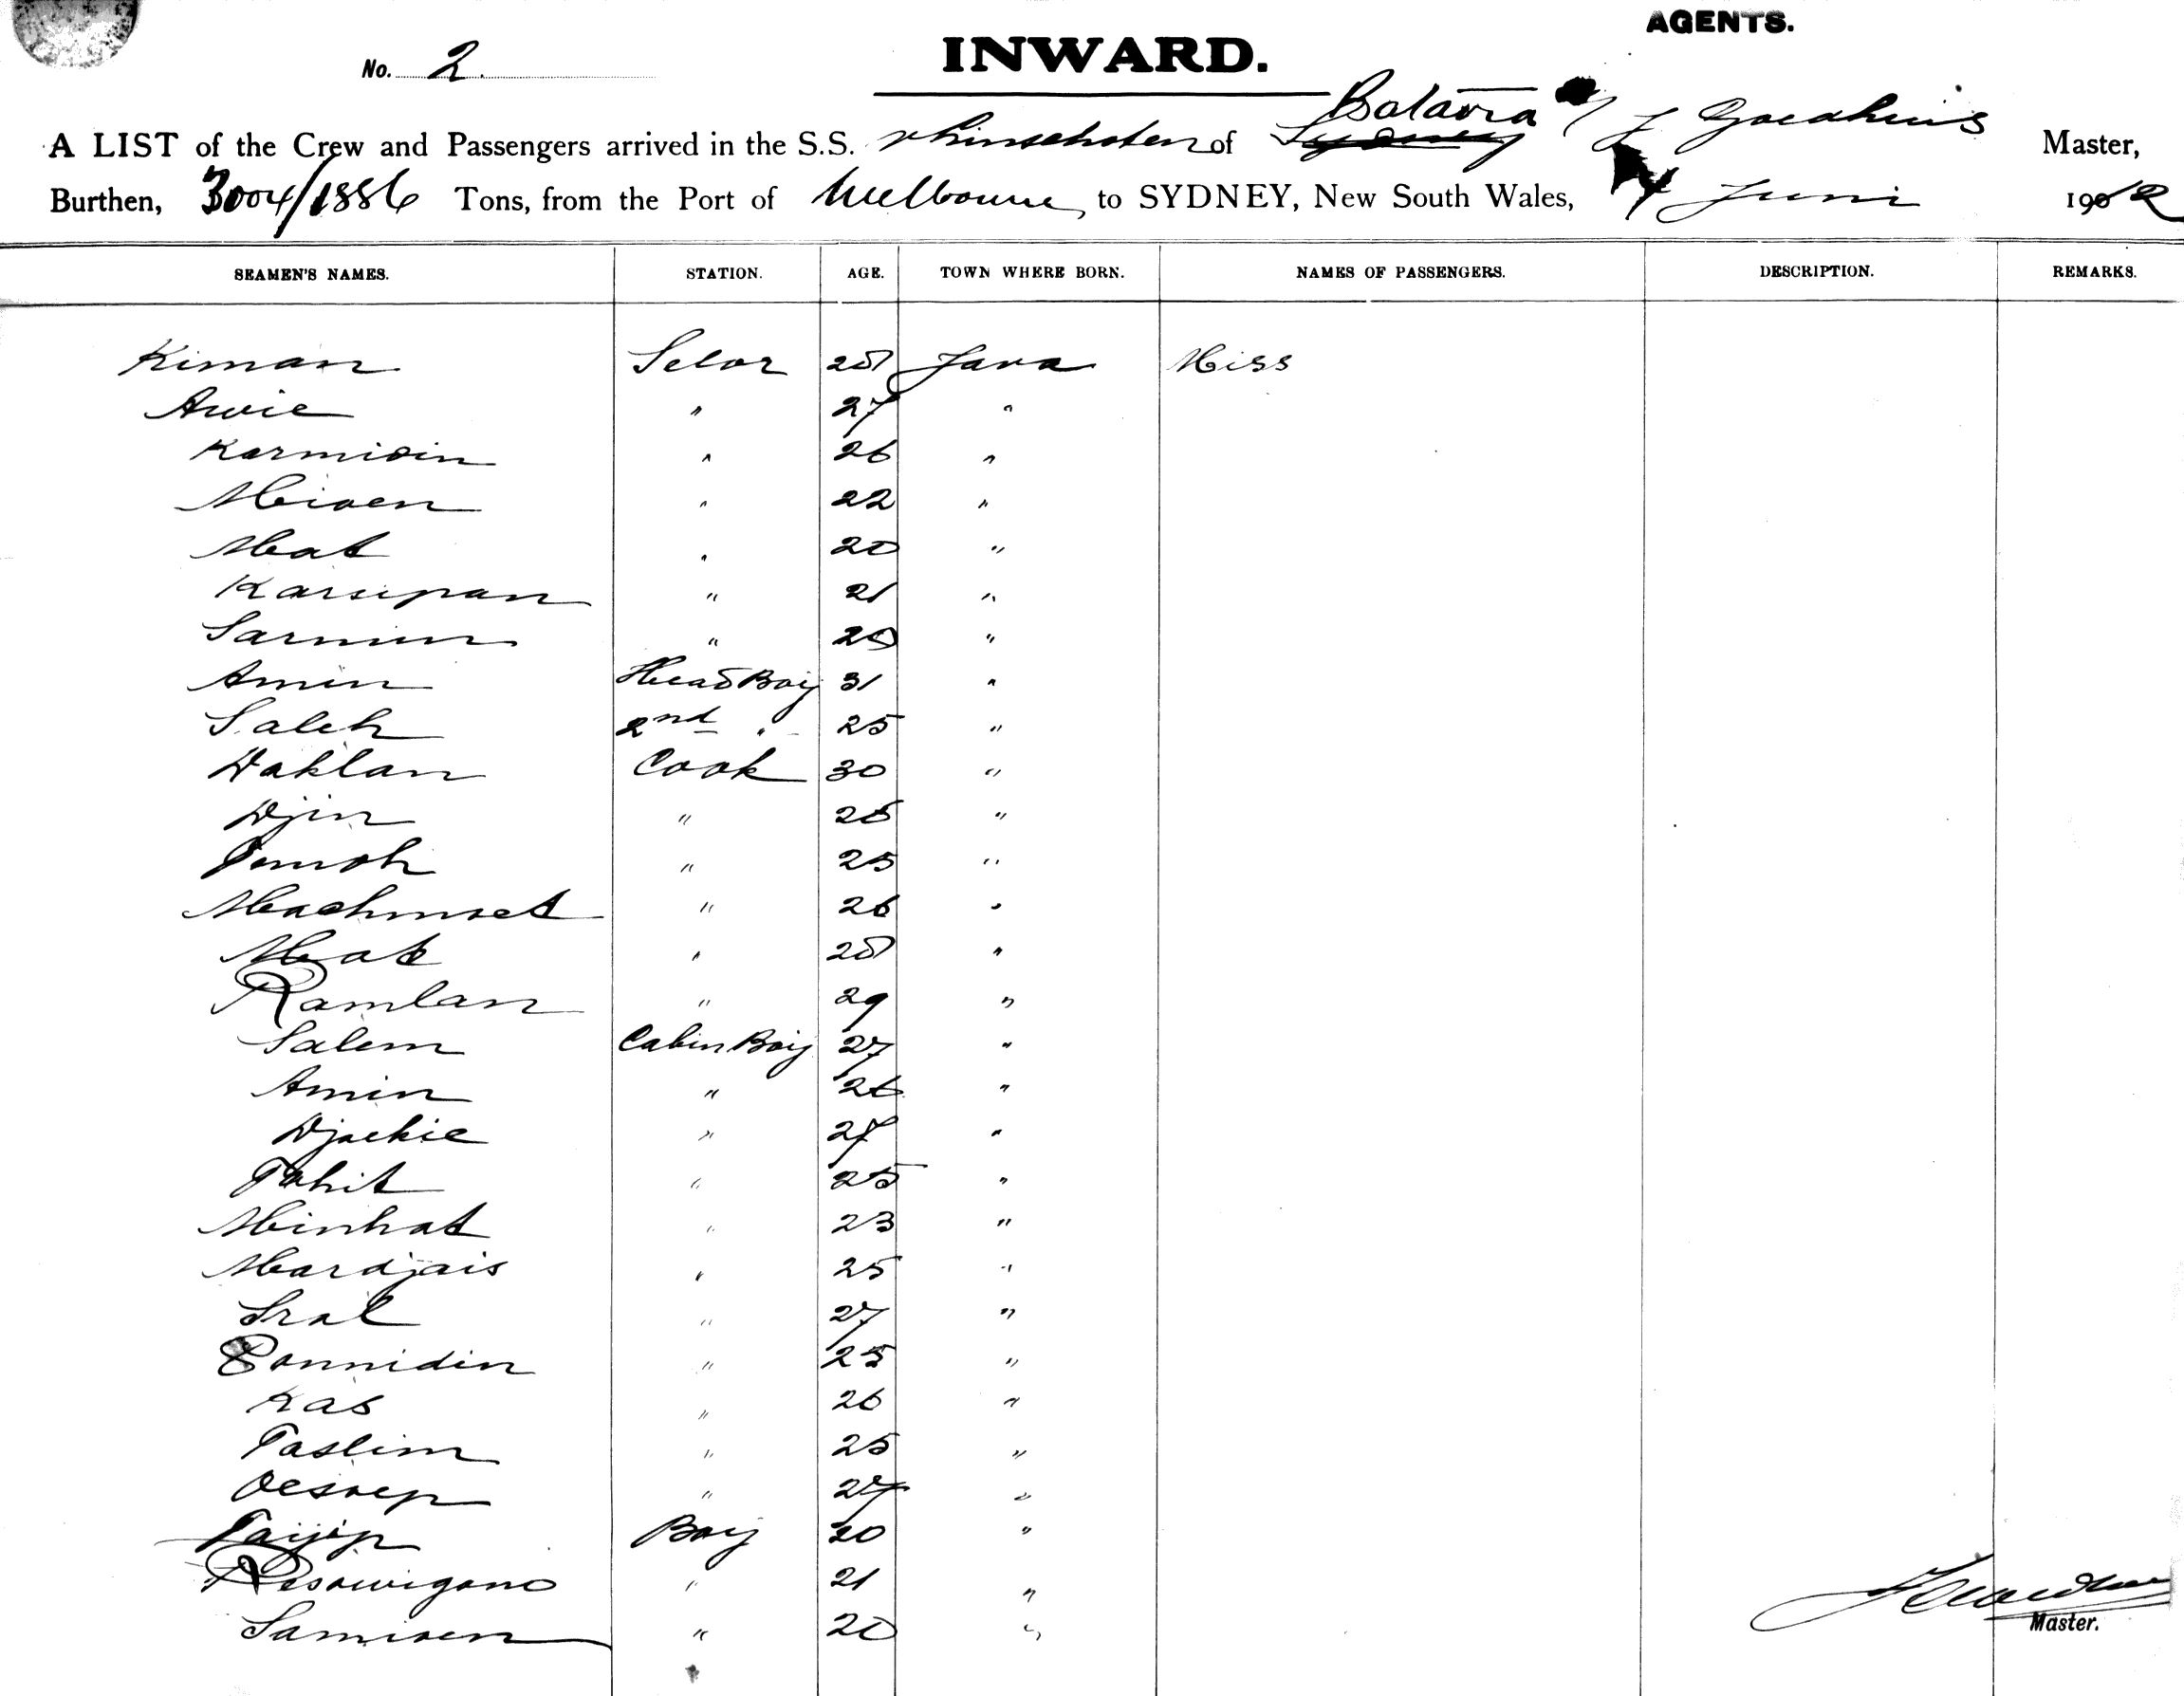 AGENTS.
No. 2.
INWARD.
A LIST of the Crew and Passengers arrived in the S.S. v Linschoten of Batavia Master,
Burthen, 3004/1886 Tons, from the Port of Melbourne to SYDNEY, New South Wales, Juni 1912
SEAMEN'S NAMES. STATION. AGE. TOWN WHERE BORN. NAMES OF PASSENGERS. DESCRIPTION. REMARKS.
Kiman Selor 28 Java Miss
Awie " 27 "
Karmidin " 26 "
Miden " 22 "
Mat " 20 "
Karsipan " 21 "
Sarmin " 20 "
Amin Head Boy 31 "
Saleh 2nd " 25 "
Daklan Cook 30 "
Djin " 25 "
" 25 "
Machmoet " 26 "
Mat " 28 "
Ramlan " 29 "
Salem Cabin Boy 27 "
Amin " 26 "
Djackie " 27 "
Tahit " 25 "
Minhat " 23 "
Mardjais " 25 "
" 27 "
" 25 "
Kas " 26 "
Taslim " 25 "
Oesoep " 27 "
Taijip Boy 20 "
" 21 "
Samioen " 20 "
Master.